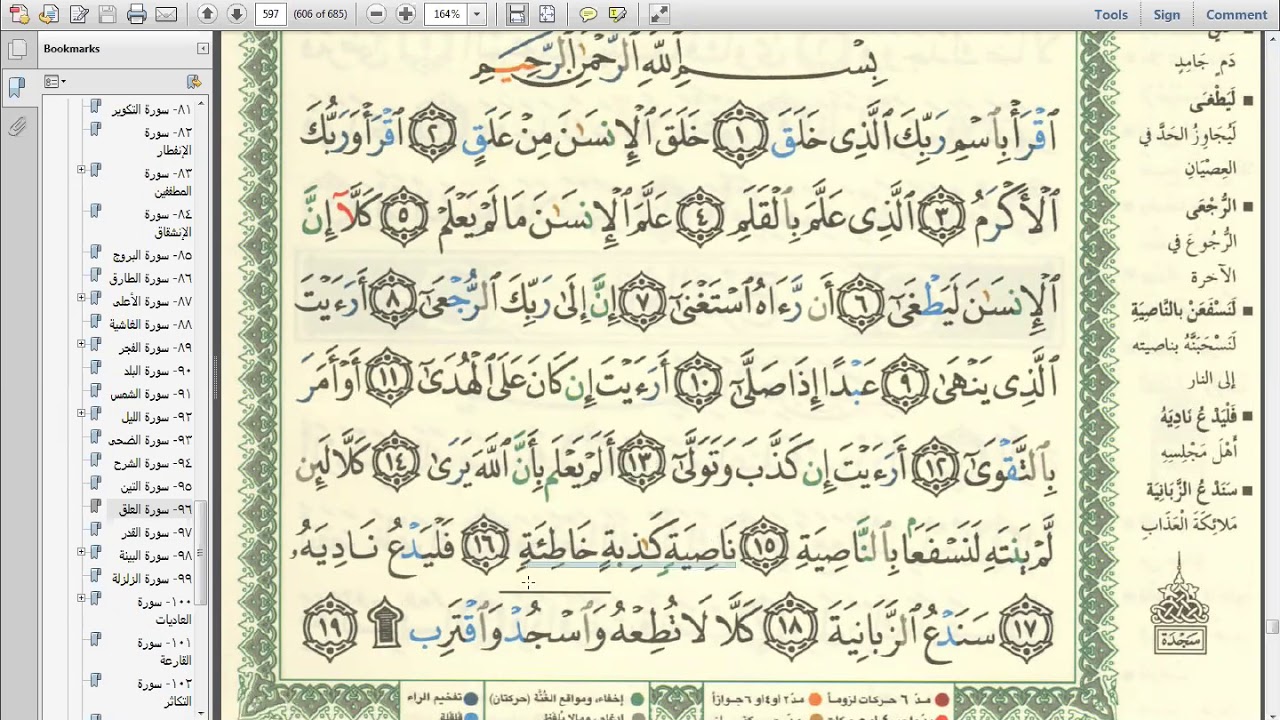 597
(606 of 685)
164%
Tools
Sign
Comment
Bookmarks
٨١- سورة التكوير
٨٢- سورة
الإنفطار
٨٣- سورة
المطففين
٨٤- سورة
الإنشقاق
٨٥- سورة البروج
٨٦- سورة الطارق
٨٧- سورة الأعلى
٨٨- سورة الغاشية
٨٩- سورة الفجر
٩٠- سورة البلد
٩١- سورة الشمس
٩٢- سورة الليل
٩٣- سورة الضحى
٩٤- سورة الشرح
٩٥- سورة التين
٩٦- سورة العلق
٩٧- سورة القدر
٩٨- سورة البينة
٩٩- سورة الزلزلة
١٠٠- سورة
العاديات
١٠١- سورة
القارعة
١٠٢- سورة
التكاثر
بِسْمِ ٱللَّهِ ٱلرَّحْمَٰنِ ٱلرَّحِيمِ
ٱقْرَأْ بِٱسْمِ رَبِّكَ ٱلَّذِى خَلَقَ ١ خَلَقَ ٱلْإِنسَٰنَ مِنْ عَلَقٍ ٢ ٱقْرَأْ وَرَبُّكَ
ٱلْأَكْرَمُ ٣ ٱلَّذِى عَلَّمَ بِٱلْقَلَمِ ٤ عَلَّمَ ٱلْإِنسَٰنَ مَا لَمْ يَعْلَمْ ٥ كَلَّآ إِنَّ
ٱلْإِنسَٰنَ لَيَطْغَىٰٓ ٦ أَن رَّءَاهُ ٱسْتَغْنَىٰٓ ٧ إِنَّ إِلَىٰ رَبِّكَ ٱلرُّجْعَىٰٓ ٨ أَرَءَيْتَ
ٱلَّذِى يَنْهَىٰ ٩ عَبْدًا إِذَا صَلَّىٰٓ ١٠ أَرَءَيْتَ إِن كَانَ عَلَى ٱلْهُدَىٰٓ ١١ أَوْ أَمَرَ
بِٱلتَّقْوَىٰٓ ١٢ أَرَءَيْتَ إِن كَذَّبَ وَتَوَلَّىٰٓ ١٣ أَلَمْ يَعْلَم بِأَنَّ ٱللَّهَ يَرَىٰ ١٤ كَلَّا لَئِن
لَّمْ يَنتَهِ لَنَسْفَعًۢا بِٱلنَّاصِيَةِ ١٥ نَاصِيَةٍ كَٰذِبَةٍ خَاطِئَةٍ ١٦ فَلْيَدْعُ نَادِيَهُۥ
١٧ سَنَدْعُ ٱلزَّبَانِيَةَ ١٨ كَلَّا لَا تُطِعْهُ وَٱسْجُدْ وَٱقْتَرِب ۩ ١٩
دَمٍ جَامِدٍ
لَيَطْغَى
لَيُجَاوِزُ الحَدَّ في
العِصْيَانِ
الرُّجْعَى
الرُّجُوعَ في
الآخرة
لَنَسْفَعَنْ بالنَّاصِيَةِ
لَنَسْحَبَنَّهُ بناصيته
إلى النار
فَلْيَدْعُ نَادِيَهُ
أَهْلَ مَجْلِسِهِ
سَنَدْعُ الزَّبَانِيَةَ
مَلائِكَةَ الْعَذَابِ
سَجْدَة
مدّ ٦ حركات لزوماً
مدّ ٢ أو٤ أو ٦ جوازاً
إخفاء، ومواقع الغُنَّة (حركتان)
تفخيم الراء
قلقلة